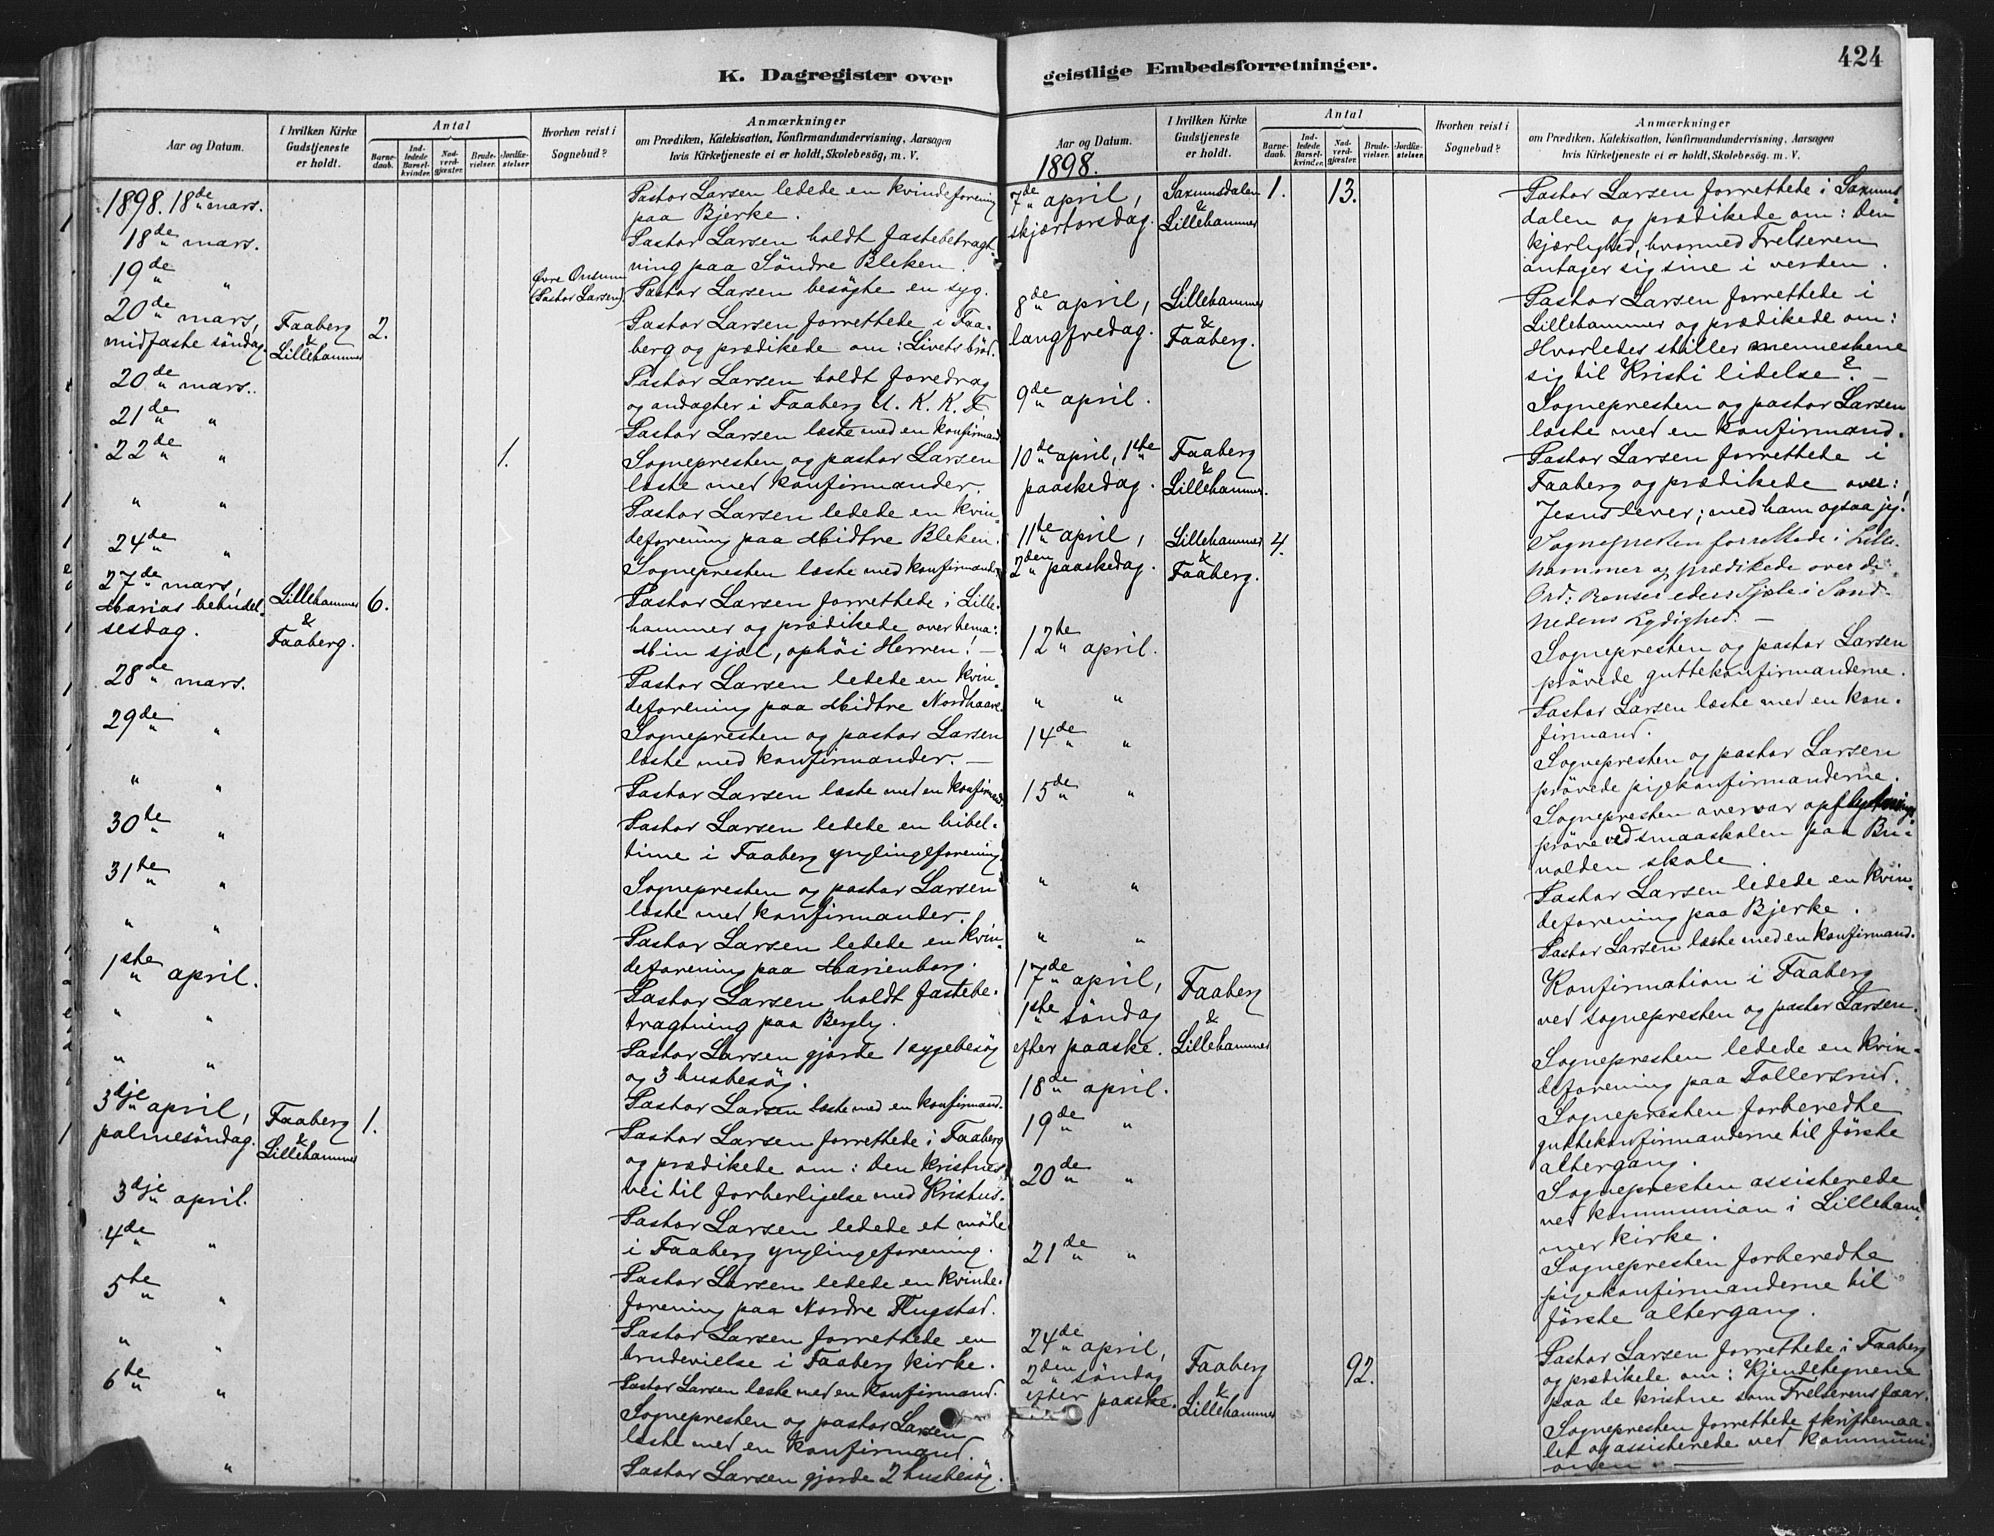 K. Dagregister over
Aar og Datum.
I hvilken Kirke Gudstjeneste er holdt.
Antal
Barnedaab.
Indledede Barselkvinder.
Nadverdgjæster.
Brudevielser.
Jordfæstelser.
Hvorhen reist i Sognebud?
Anmærkninger
om Prædiken, Katekisation, Konfirmandundervisning, Aarsagen
hvis Kirketjeneste ei er holdt, Skolebesög, m. V.
1898. 18de mars.
Pastor Larsen ledede en kvindeforening
paa Bjerke.
18de mars.
Pastor Larsen holdt fastebetragt-
ning paa Söndre Bleken.
19de "
Övre Onsum
(Pastor Larsen).
Pastor Larsen besögte en syg.
20de mars,
midfaste söndag.
Faaberg
&
Lillehammer
2.
Pastor Larsen forrettede i Faa-
berg og prædikede om: Livets bröd.
20de mars.
Pastor Larsen holdt foredrag
og andagter i Faaberg U. K. K. F.
21de "
Pastor Larsen læste med en konfirmand
22de "
1.
Sognepresten og pastor Larsen
læste med konfirmander.
" "
Pastor Larsen ledede en kvin-
deforening paa Midtre Bleken.
24de "
Sognepresten læste med konfirmander
27de mars,
Marias bebudel-
sesdag.
Lillehammer
&
Faaberg.
6.
Pastor Larsen forrettede i Lille-
hammer og prædikede over tema:
Min sjæl, ophöi Herren! -
28de mars.
Pastor Larsen ledede en kvin-
deforening paa Midtre Nordhaare.
29de "
Sognepresten og pastor Larsen
læste med konfirmander. -
" "
Pastor Larsen læste med en konfirmand
30te "
Pastor Larsen ledede en bibel-
time i Faaberg ynglingeforening.
31te "
Sognepresten og pastor Larsen
læste med konfirmander.
" "
Pastor Larsen ledede en kvin-
deforening paa Marienborg.
1ste april.
Pastor Larsen holdt fastebe-
tragtning paa Bergly.
" "
Pastor Larsen gjorde 1 sygebesög
og 3 husbesög.
" "
Pastor Larsen læste med en konfirmand.
3dje april,
palmesöndag.
Faaberg
&
Lillehammer
1.
Pastor Larsen forrettede i Faaberg
og prædikede om: den kristnes
vei til forherligelse med Kristus.
3dje april.
Pastor Larsen ledede et möde
i Faaberg ynglingeforening.
4de "
Pastor Larsen ledede en kvinde-
forening paa Nordre Flugstad.
5te "
Pastor Larsen forrettede en
brudevielse i Faaberg kirke.
" "
Pastor Larsen læste med en konfirmand.
6te "
Sognepresten og pastor Larsen
læste med en konfirmand.
"
Pastor Larsen gjorde 2 husbesög.
geistlige Embedsforretninger.
424
Aar og Datum.
1898.
I hvilken Kirke Gudstjeneste er holdt.
Antal
Barnedaab.
Indledede Barselkvinder.
Nadverdgjæster.
Brudevielser.
Jordfæstelser.
Hvorhen reist i Sognebud?
Anmærkninger
om Prædiken, Katekisation, Konfirmandundervisning, Aarsagen
hvis Kirketjeneste ei er holdt, Skolebesög, m. V.
7de april,
skjærtorsdag.
Saxumsdalen
&
Lillehammer
1.
13.
Pastor Larsen forrettede i Saxums
dalen og prædikede om: den
kjærlighed, hvormed Frelseren
antager sig sine i verden.
8de april,
langfredag.
Lillehammer
&
Faaberg.
Pastor Larsen forrettede i
Lillehammer og prædikede om:
Hvorledes stiller menneskene
sig til Kristi lidelse? -
9de april.
Sognepresten og pastor Larsen
læste med en konfirmand.
10de april, 1ste
paaskedag.
Faaberg
&
Lillehammer.
Pastor Larsen forrettede i
Faaberg og prædikede over:
Jesus lever; med ham ogsaa jeg!
11te april,
2den paaskedag.
Lillehammer
&
Faaberg.
4.
Sognepresten forrettede i Lille-
hammer og prædikede over de
Ord: Renser eders Sjæle i Sand-
hedens Lydighed. -
12te april.
Sognepresten og pastor Larsen
prövede guttekonfirmanderne.
" "
Pastor Larsen læste med en kon-
firmand.
14de "
Sognepresten og pastor Larsen
prövede pigekonfirmanderne.
15de "
Sognepresten overvar opflytnings
pröve ved smaaskolen paa
skole.
" "
Pastor Larsen ledede en kvin-
deforening paa Bjerke.
" "
Pastor Larsen læste med en konfirmand.
17de april,
1ste söndag
efter paaske.
Faaberg
&
Lillehammer
Konfirmation i Faaberg
ved sognepresten og pastor Larsen.
18de april.
Sognepresten ledede en kvin-
deforening paa Tollersrud.
19de "
Sognepresten forberedte
guttekonfirmanderne til förste
altergang.
20de "
Sognepresten assisterede
ved kommunion i Lilleham-
mer kirke.
21de "
Sognepresten forberedte
pigekonfirmanderne til
förste altergang.
24de april,
2den söndag
efter paaske.
Faaberg
&
Lillehammer
92.
Pastor Larsen forrettede i Faaberg
og prædikede om: Kjendetegnene
paa de kristne som Frelserens faar.
Sognepresten forrettede skriftemaa-
let og assisterede ved kommuni-
onen.